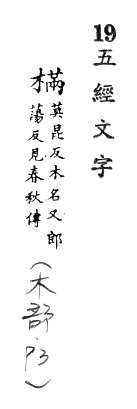 19五經文字
樠莫昆反木名又郎
蕩反見春秋傳
(木部.P3)